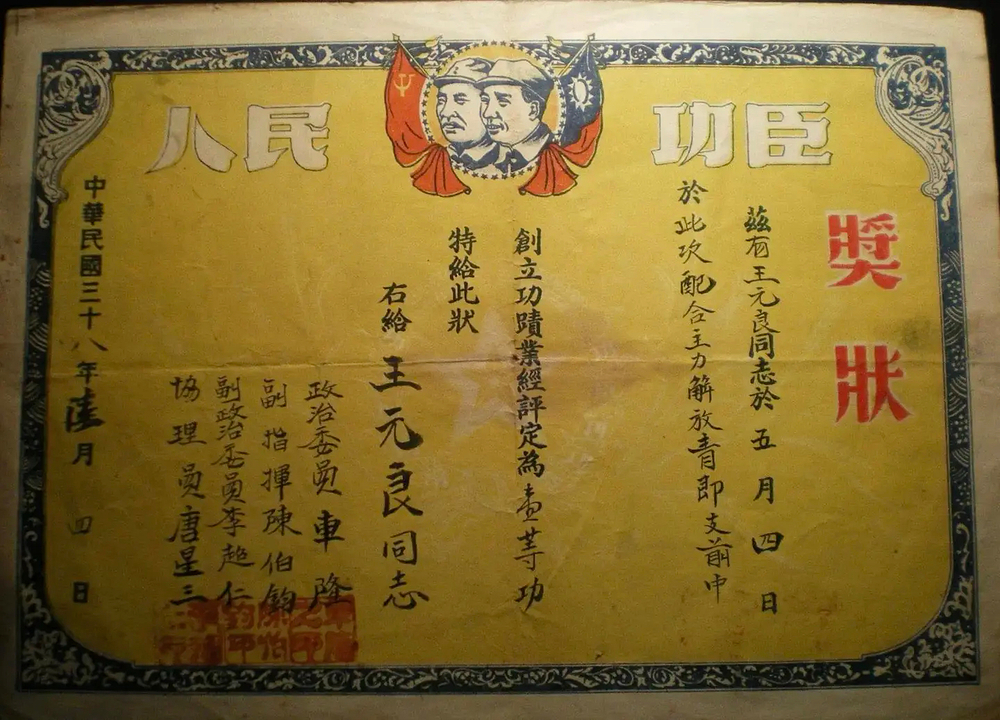 人民功臣
獎狀
茲有王元良同志於五月四日
於此次配合主力解放青即支前中
創立功蹟業經評定為壹等功
特給此狀
右給
王元良同志
政治委員車隆
副指揮陳伯鈞
副政治委員李超仁
協理員唐星三
中華民國三十八年陸月四日